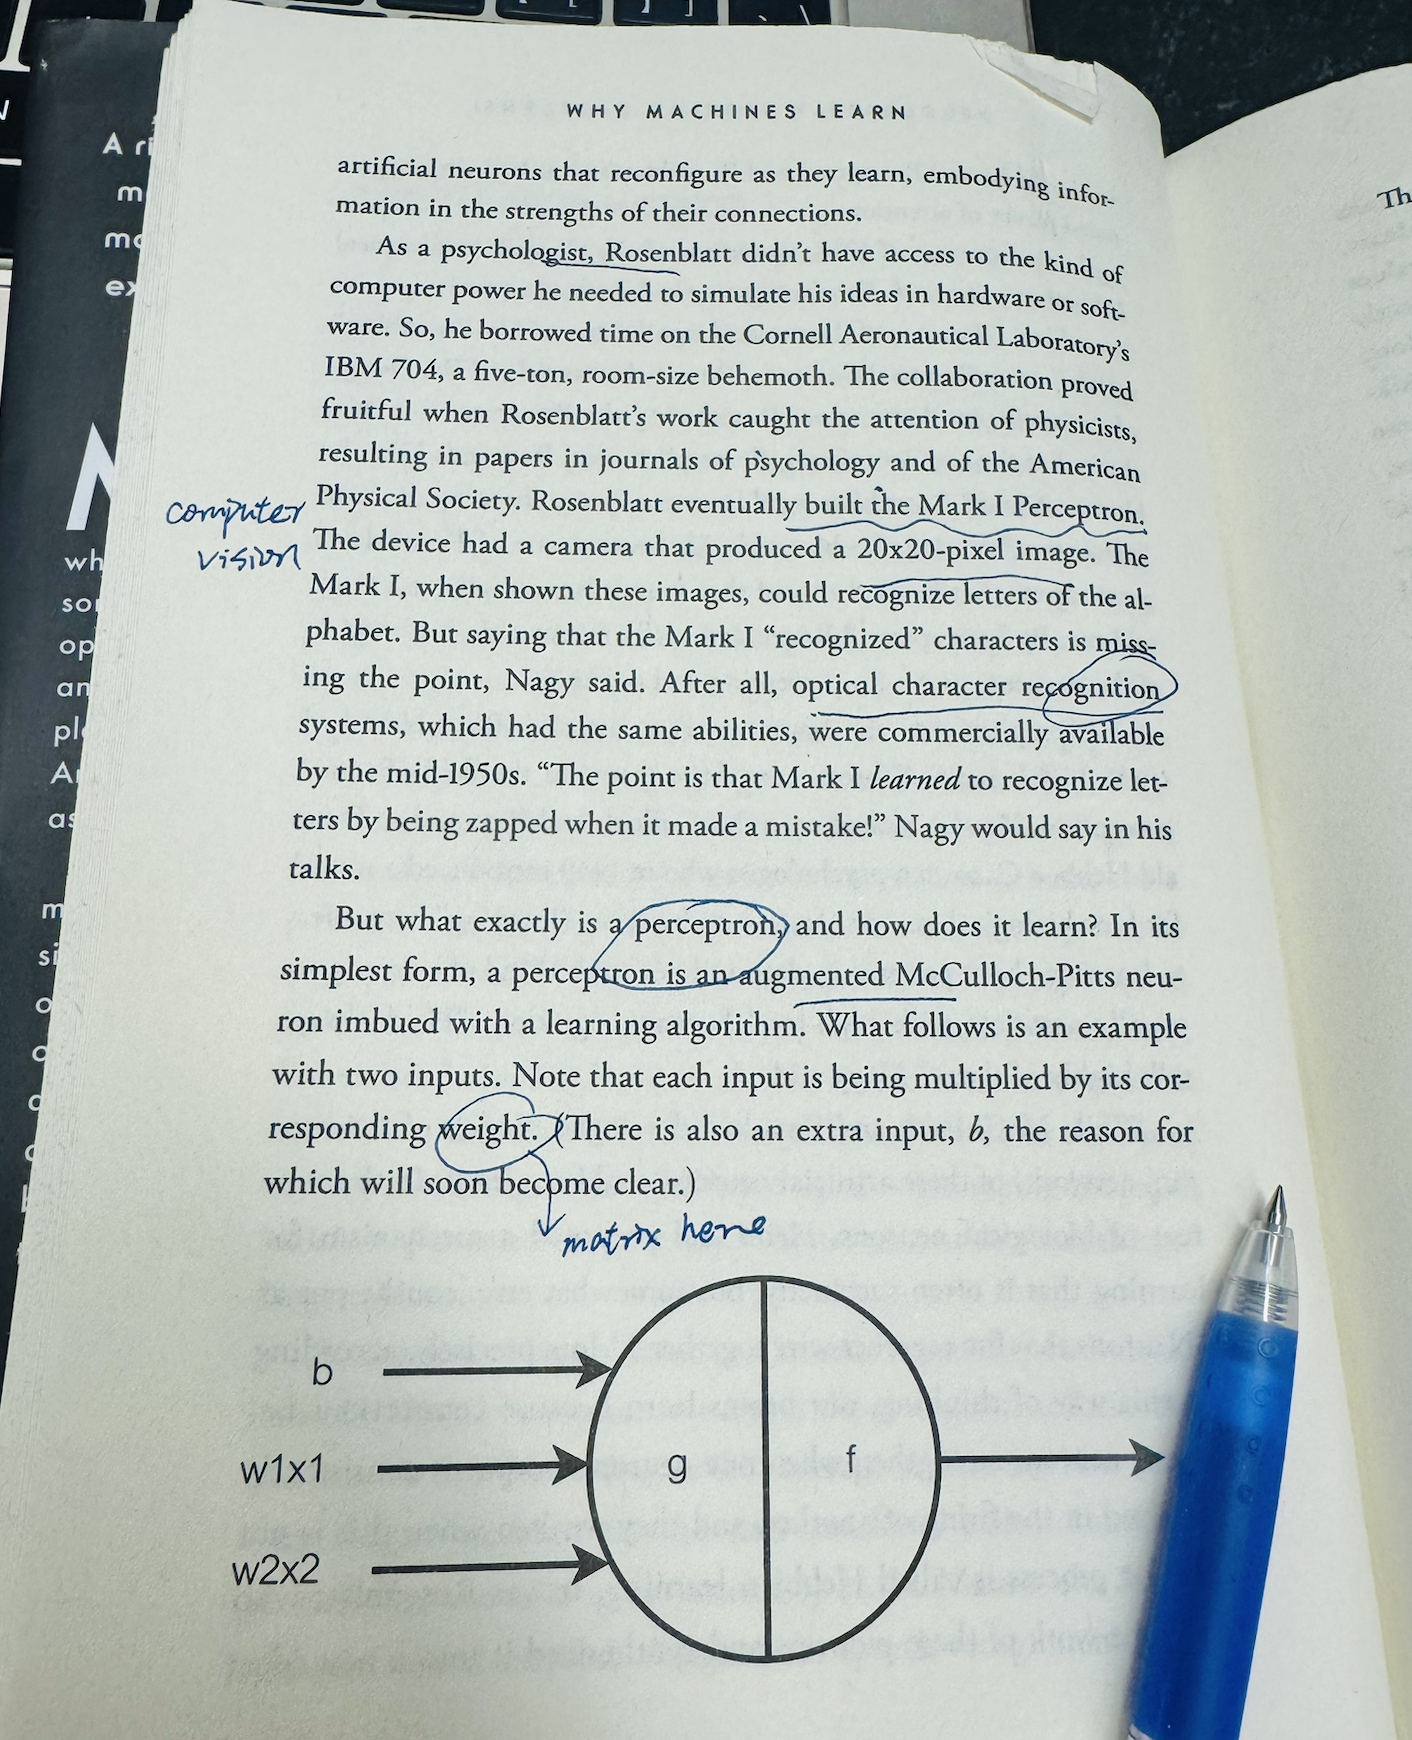 WHY MACHINES LEARN
artificial neurons that reconfigure as they learn, embodying infor-
mation in the strengths of their connections.
As a psychologist, Rosenblatt didn't have access to the kind of
computer power he needed to simulate his ideas in hardware or soft-
ware. So, he borrowed time on the Cornell Aeronautical Laboratory's
IBM 704, a five-ton, room-size behemoth. The collaboration proved
fruitful when Rosenblatt's work caught the attention of physicists,
resulting in papers in journals of psychology and of the American
Physical Society. Rosenblatt eventually built the Mark I Perceptron.
computer
vision
The device had a camera that produced a 20x20-pixel image. The
Mark I, when shown these images, could recognize letters of the al-
phabet. But saying that the Mark I “recognized” characters is miss-
ing the point, Nagy said. After all, optical character recognition
systems, which had the same abilities, were commercially available
by the mid-1950s. “The point is that Mark I learned to recognize let-
ters by being zapped when it made a mistake!” Nagy would say in his
talks.
But what exactly is a perceptron, and how does it learn? In its
simplest form, a perceptron is an augmented McCulloch-Pitts neu-
ron imbued with a learning algorithm. What follows is an example
with two inputs. Note that each input is being multiplied by its cor-
responding weight. (There is also an extra input, b, the reason for
which will soon become clear.)
matrix here
b
w1x1
g f
w2x2
Th